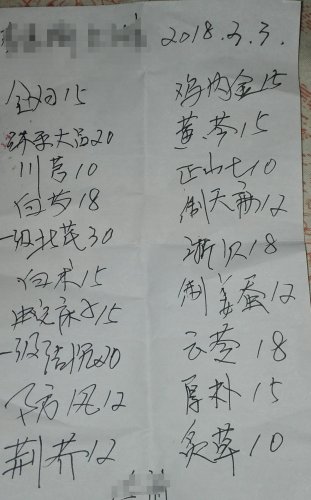 2018.3.3.
全归15
川芎10
白芍18
一级北芪30
白术15
一级洁杞20
防风12
荆芥12
鸡内金15
黄芩15
正山七10
制天南12
浙贝18
制姜蚕12
云苓18
厚朴15
炙草10